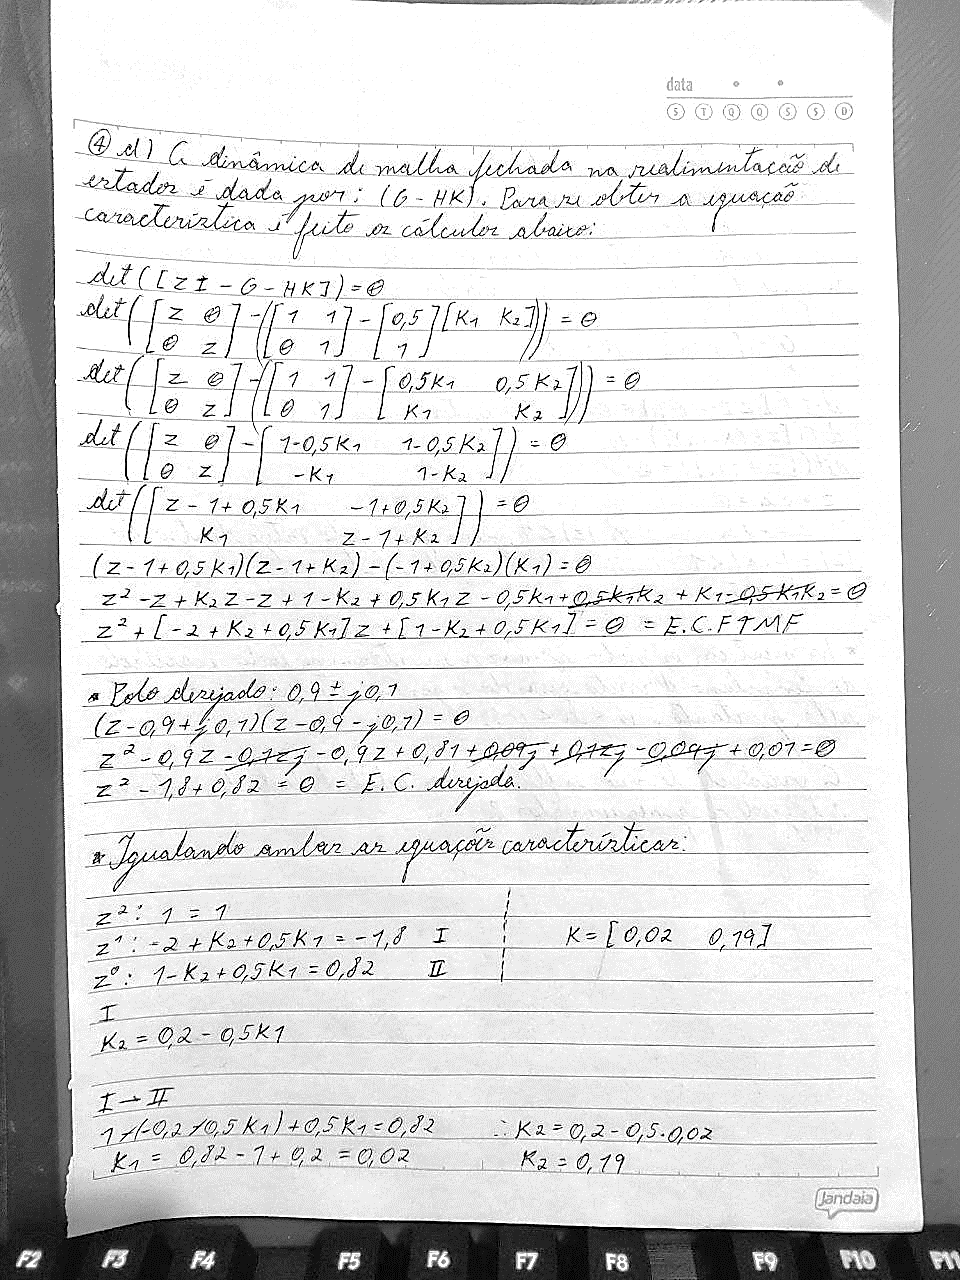 data
S T Q Q S S D
④ d) A dinâmica de malha fechada na realimentação de
estados é dada por: (G - HK). Para se obter a equação
característica é feito os cálculos abaixo:
det([ZI - G - HK]) = 0
det([Z 0 0 Z] - ([1 1 0 1] - [0,5 1][K1 K2])) = 0
det([Z 0 0 Z] - ([1 1 0 1] - [0,5K1 0,5K2 K1 K2])) = 0
det([Z 0 0 Z] - [1-0,5K1 1-0,5K2 -K1 1-K2]) = 0
det([Z-1+0,5K1 -1+0,5K2 K1 Z-1+K2]) = 0
(Z-1+0,5K1)(Z-1+K2)-(-1+0,5K2)(K1) = 0
Z²-Z+K2Z-Z+1-K2+0,5K1Z-0,5K1+0,5K1K2+K1-0,5K1K2 = 0
Z²+[-2+K2+0,5K1]Z+[1-K2+0,5K1] = 0 = E.C.FTMF
* Polo desejado: 0,9 ± j0,1
(Z-0,9+j0,1)(Z-0,9-j0,1) = 0
Z²-0,9Z-0,1Zj-0,9Z+0,81+0,09j+0,1Zj-0,09j+0,01=0
Z²-1,8+0,82 = 0 = E.C. desejada.
* Igualando ambas as equações características:
Z²: 1 = 1
Z¹: -2+K2+0,5K1 = -1,8 I K = [0,02 0,19]
Z⁰: 1-K2+0,5K1 = 0,82 II
I
K2 = 0,2 - 0,5K1
I → II
1+(-0,2+0,5K1)+0,5K1=0,82 ∴ K2 = 0,2-0,5.0,02
K1 = 0,82-1+0,2 = 0,02 K2 = 0,19
Jandaia
F2 F3 F4 F5 F6 F7 F8 F9 F10 F11